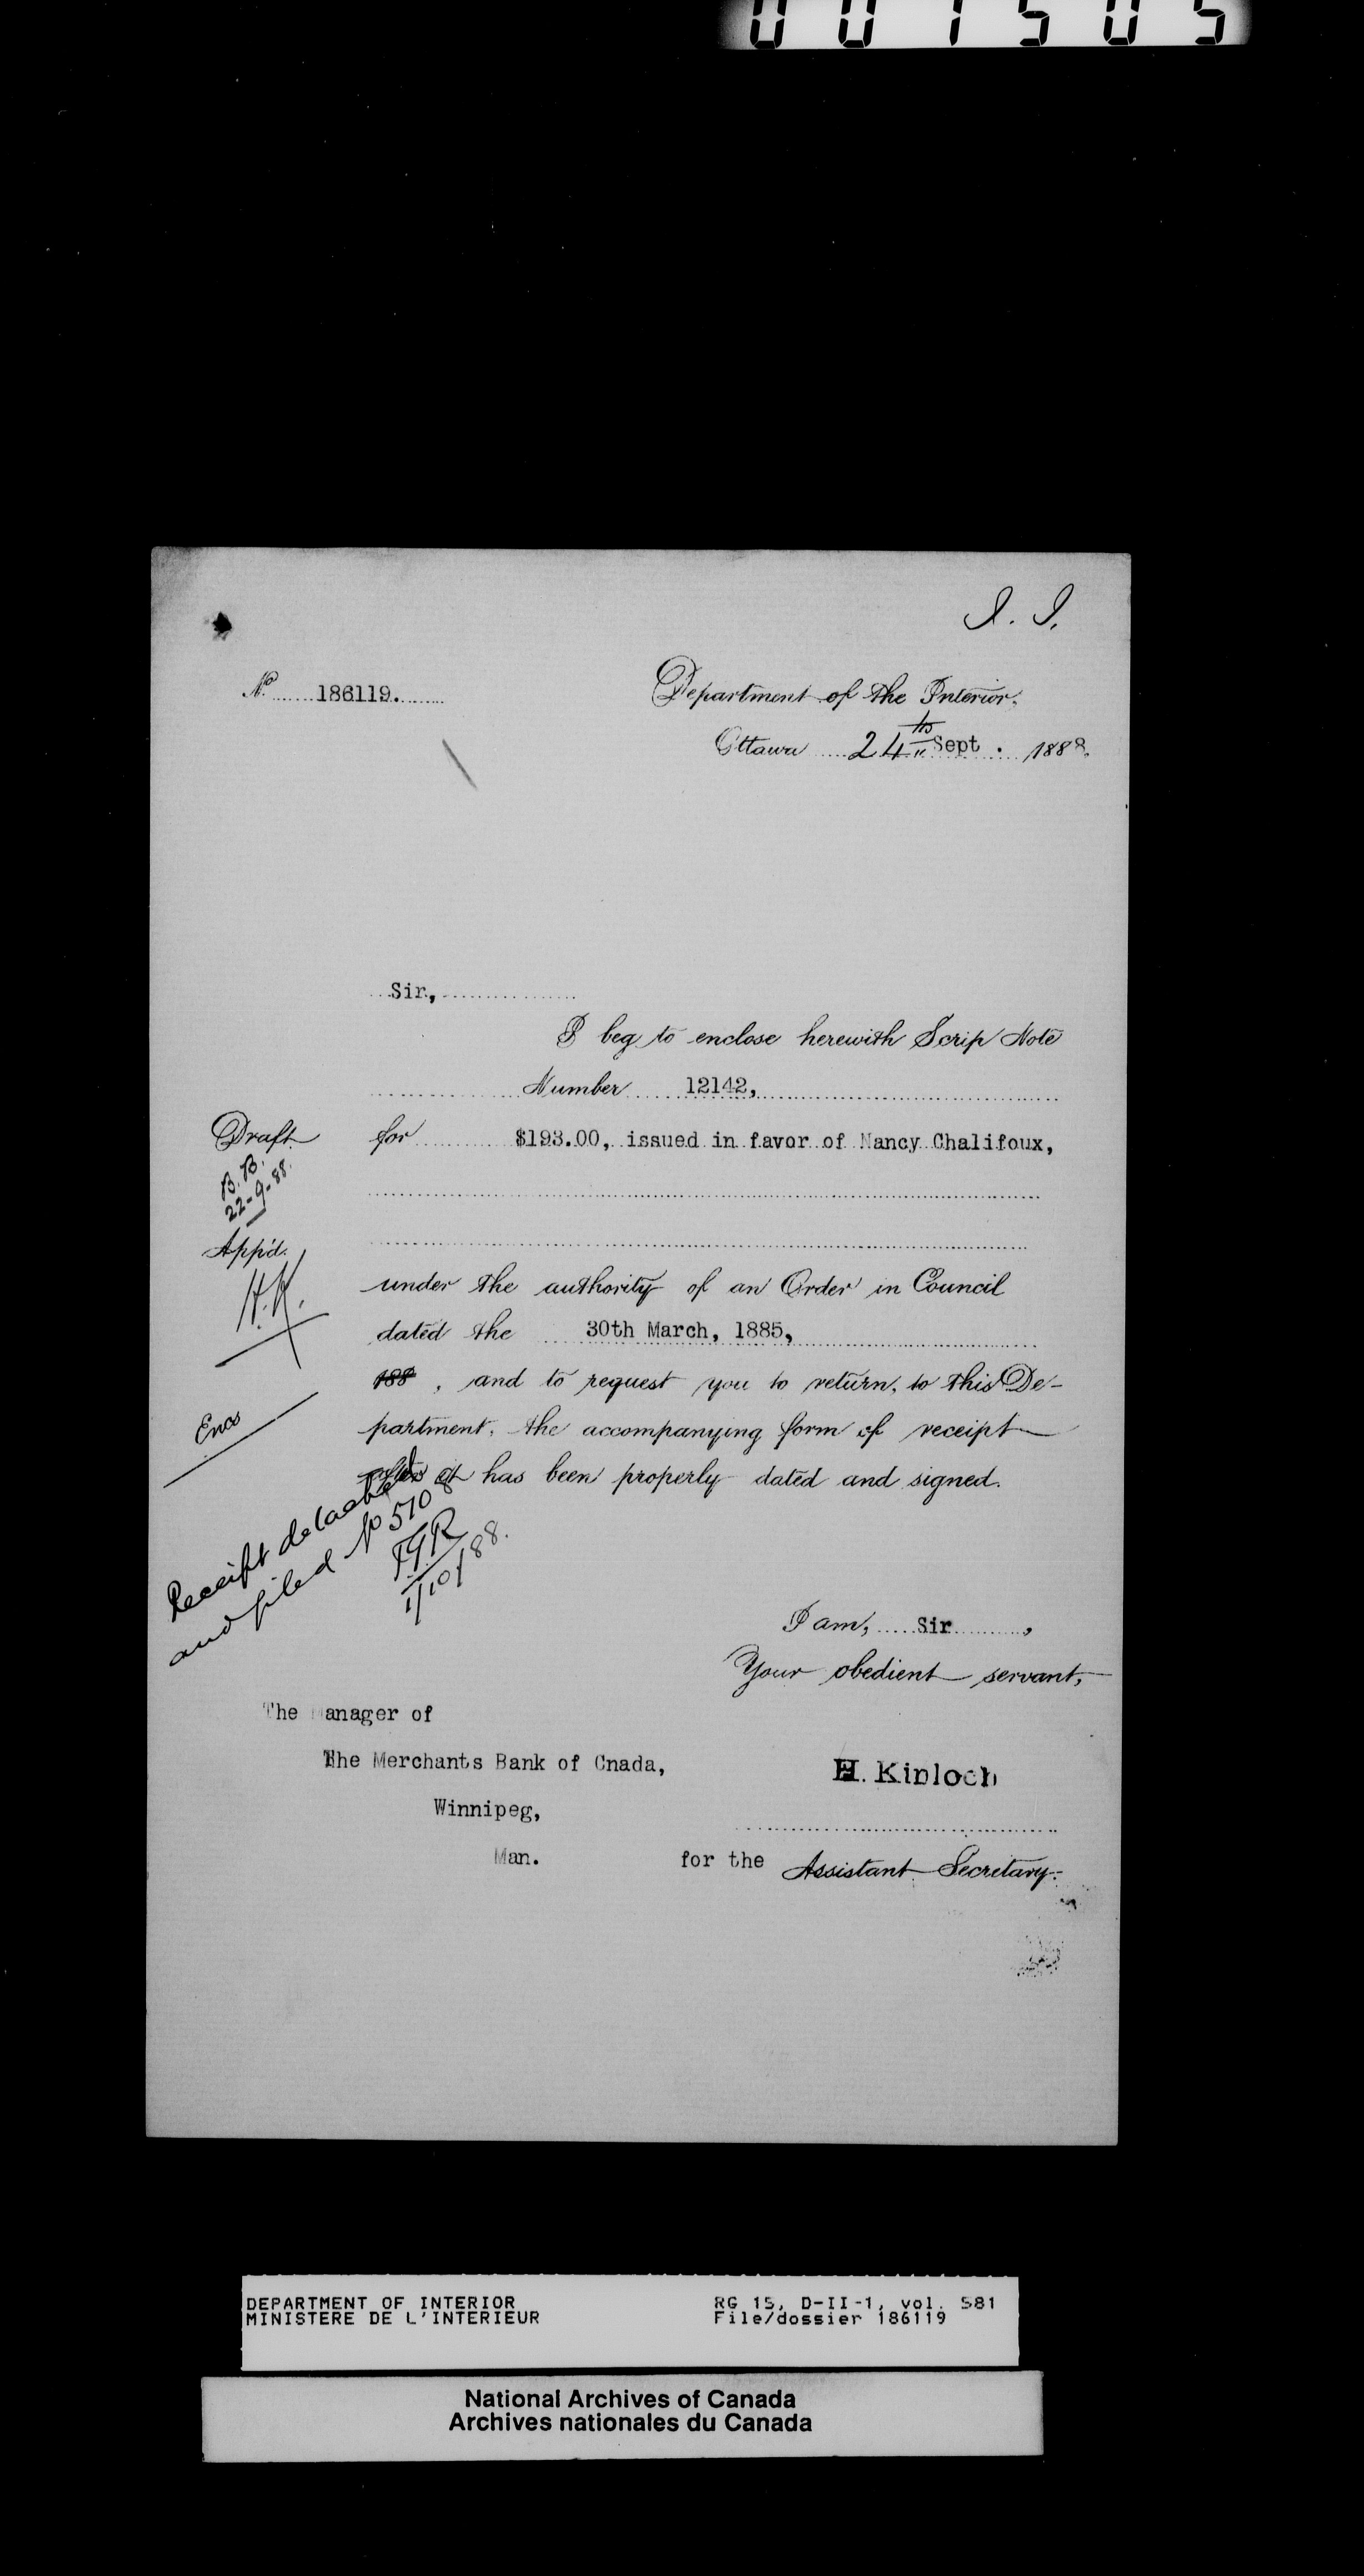 001505
I. I.
No 186119.
Department of the Interior.
Ottawa 24th Sept. 1888.
Sir,
I beg to enclose herewith Scrip Note
Number 12142,
Draft for $193.00, issued in favor of Nancy Chalifoux,
B.B.
22-9-88.
App'd.
H.K.
under the authority of an Order in Council
dated the 30th March, 1885,
188 , and to request you to return, to this De-
Encs
partment, the accompanying form of receipt
after it has been properly dated and signed.
Receipt detached
and filed No 5108
1/10/88.
I am, Sir ,
Your obedient servant,
The Manager of
The Merchants Bank of Cnada,
Winnipeg,
Man.
H. Kinloch
for the Assistant Secretary.
DEPARTMENT OF INTERIOR
MINISTERE DE L'INTERIEUR
RG 15, D-II-1, vol. 581
File/dossier 186119
National Archives of Canada
Archives nationales du Canada